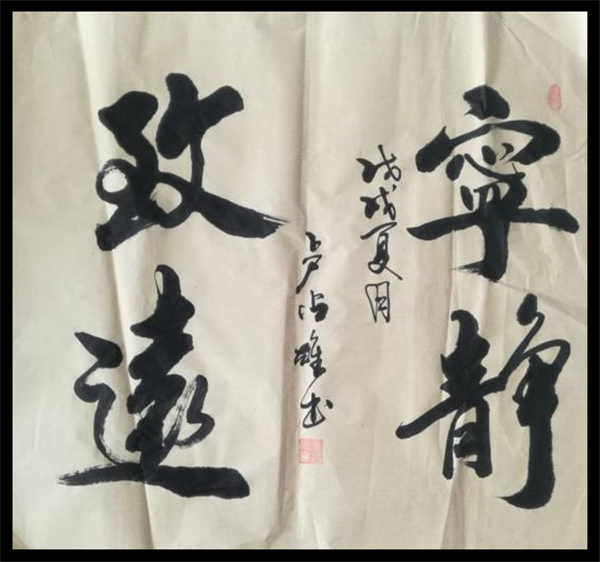 寧静
戊戌夏月
卢雄书
致遠